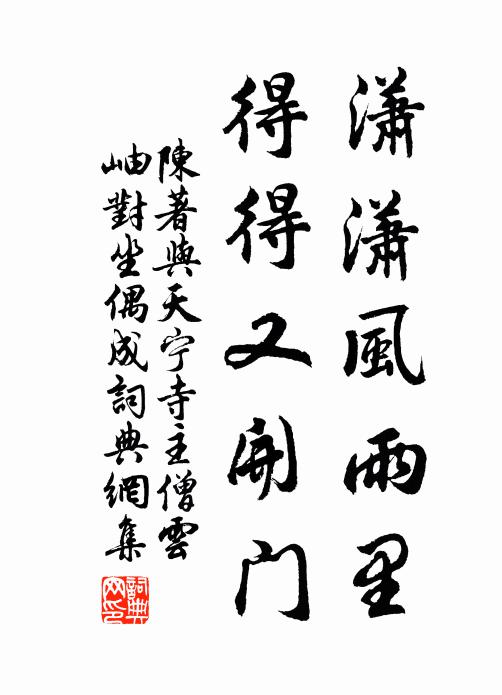 潇潇風雨里
得得又開门
陳著與天宁寺主僧雲
岫對坐偶成詞典網集
詞典
网印